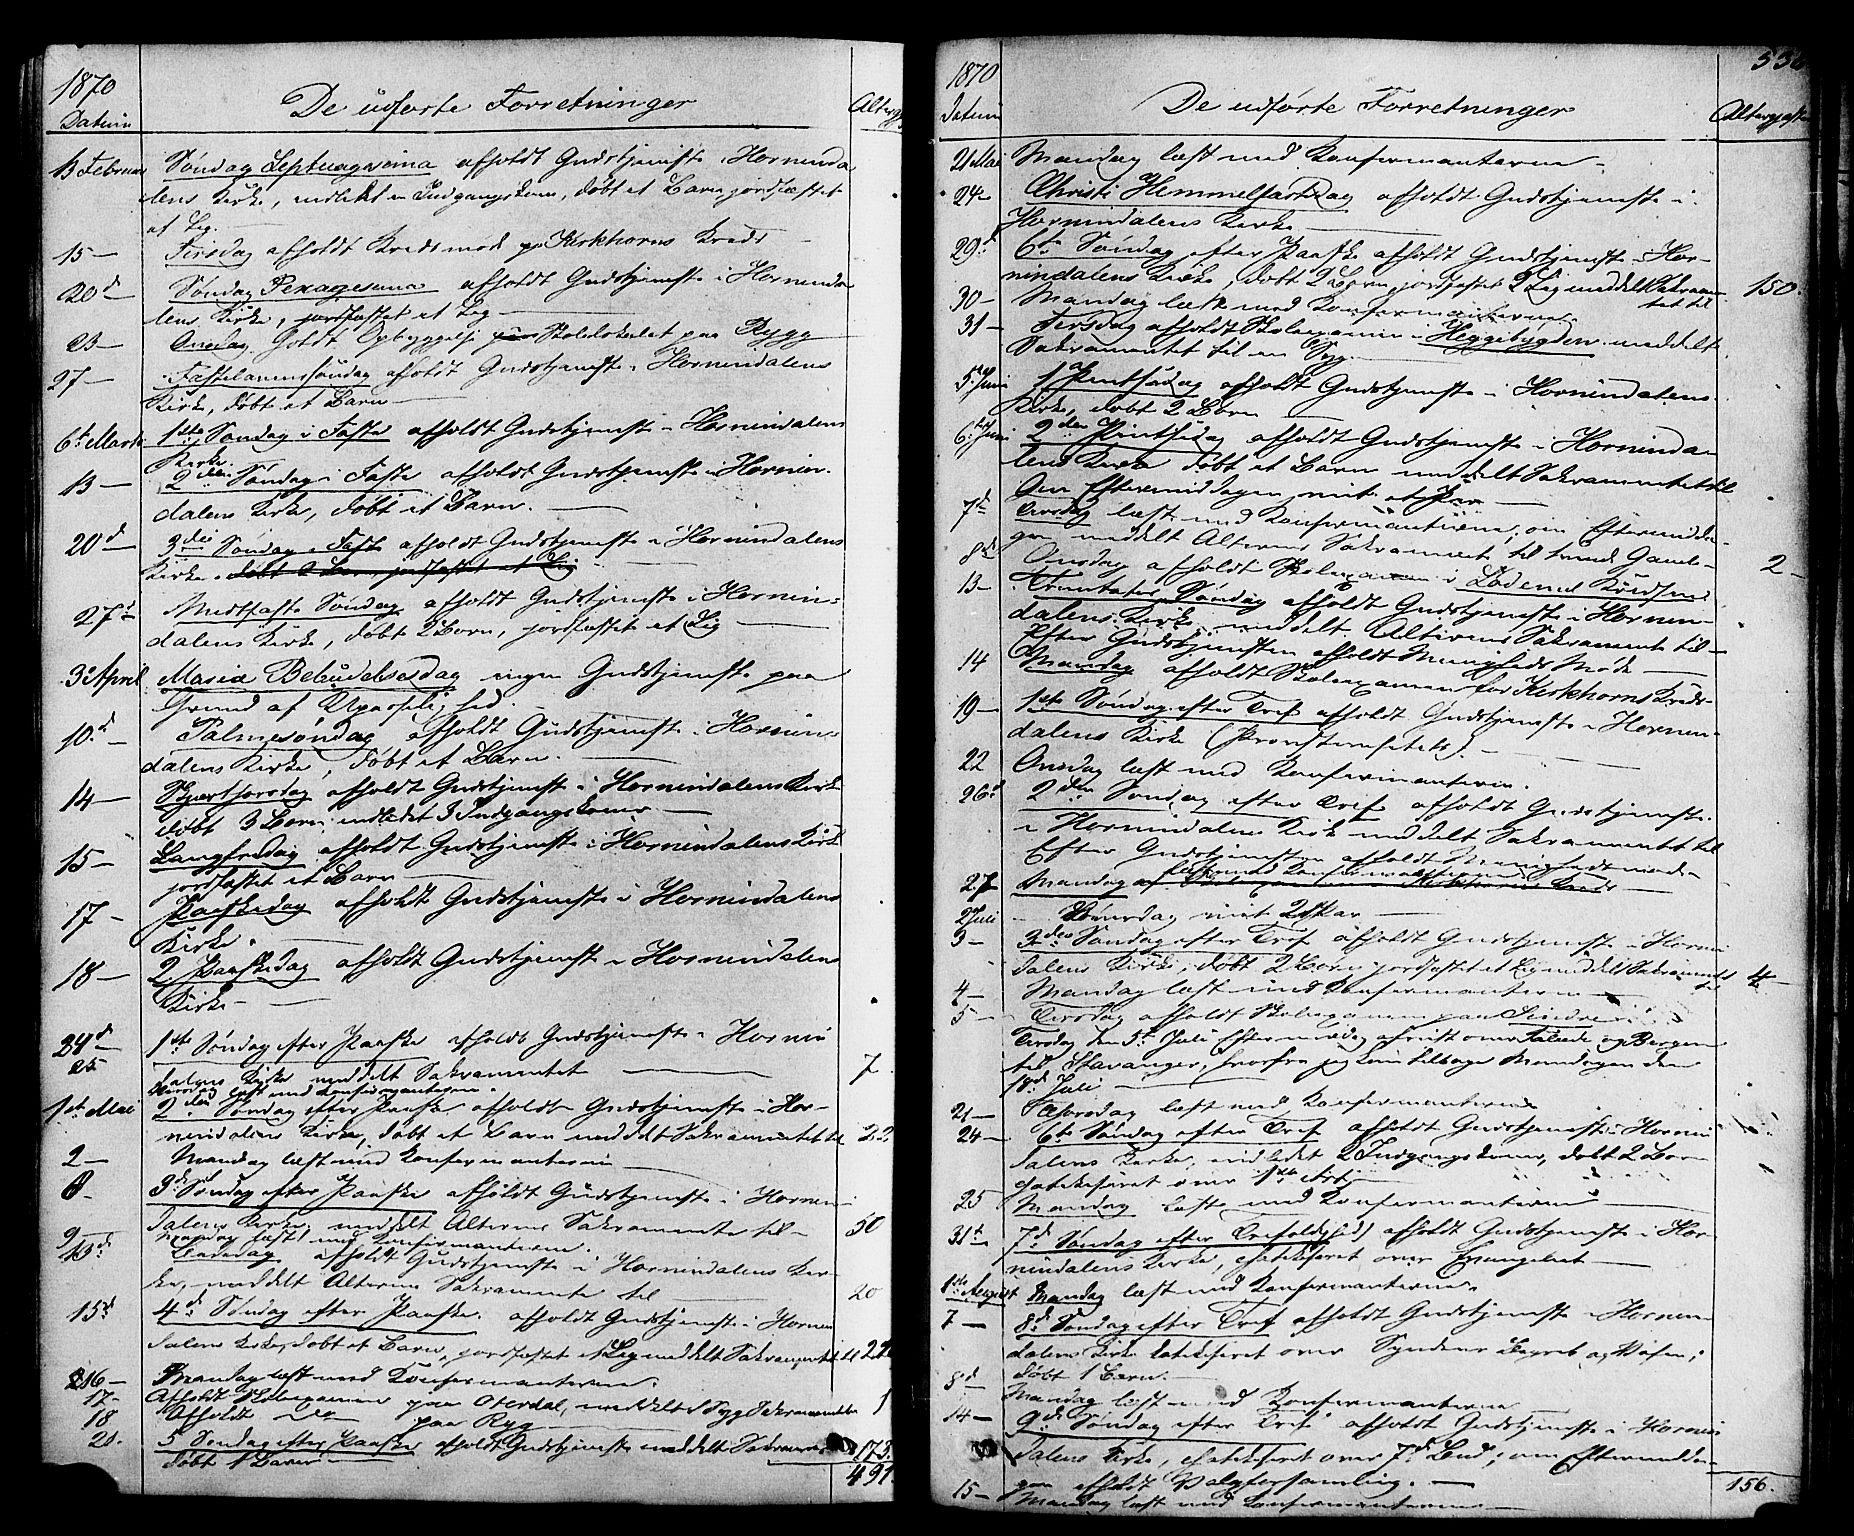 1870
Datum
De udførte Forretninger
Altergj
13 Februar Søndag Septuagesima afholdt Gudstjeneste i Horninda
lens Kirke, indledet en Indgangskone, døbt et Barn, jordfæstet
et Lig.
15 — Tirsdag afholdt Kredsmøde paa Kirkhorns Kreds
20d Søndag Sexagesima afholdt Gudstjeneste i Horninda
lens Kirke, jordfæstet et Lig
23 — Onsdag holdt Opbyggelse Skolelokalet paa Rygg
27 — Fastelavenssøndag afholdt Gudstjeneste i Hornindalens
Kirke, døbt et Barn
6te Marts 1ste Søndag i Faste afholdt Gudstjeneste i Hornindalens
Kirke.
13 — 2den Søndag i Faste afholdt Gudstjeneste i Hornin-
dalens Kirke, døbt et Barn.
20d — 3die Søndag i Faste afholdt Gudstjeneste i Hornindalens
Kirke. døbt 2 Børn, jordfæstet et Lig
27d — Midfaste Søndag afholdt Gudstjeneste i Hornin-
dalens Kirke, døbt 2 Børn, jordfæstet et Lig
3d April Mariæ Bebudelsesdag ingen Gudstjeneste paa
Grund af Upasselighed.
10d — Palmesøndag afholdt Gudstjeneste i Hornin
dalens Kirke, døbt et Barn.
14 — Skjærthorsdag afholdt Gudstjeneste i Hornindalens Kirke
døbt 3 Børn, indledet 3 Indgangskoner
15 — Langfredag afholdt Gudstjeneste i Hornindalens Kirke
jordfæstet et Barn
17 — Paaskedag afholdt Gudstjeneste i Hornindalens
Kirke.
18 — 2. Paaskedag afholdt Gudstjeneste i Hornindalens
Kirke
24d — 1ste Søndag efter Paaske afholdt Gudstjeneste i Hornin
dalens Kirke meddelt Sakramentet — 7
25 læst med Konfirmanterne.
1ste Mai 2den Søndag efter Paaske afholdt Gudstjeneste i Hor-
nindalens Kirke, døbt et Barn meddelt Sakramentet til 22
2 — Mandag læst med Konfirmanterne
8 — 3die Søndag efter Paaske afholdt Gudstjeneste i Hornin
dalens Kirke, meddelt Alterens Sakramente til — 50
9 Mandag læst med Konfirmanterne.
13d afholdt Gudstjeneste i Hornindalens Kir-
ke, meddelt Alterens Sakramente til — 20
15d 4d Søndag efter Paaske. afholdt Gudstjeneste i Hornin
dalens Kirke, døbt et Barn, jordfæstet et Lig meddelt Sakramentet til
16 — Mandag læst med Konfirmanterne.
17 — Afholdt Skoleexamen paa Oterdal, meddelt 1 Syg Sakramentet 1
18 Afholdt do paa Ryg
5 Søndag efter Paaske, afholdt Gudstjeneste meddelt Sakramentet 173
døbt 1 Barn
1870
Datum
De udførte Forretninger
Altergjester
Mandag læst med Konfirmanterne
24 — Christi Hemmelfartsdag afholdt Gudstjeneste i
Hornindalens Kirke
29d 6te Søndag efter Paaske afholdt Gudstjeneste i Hor-
nindalens Kirke, døbt 2 Børn, jordfæstet 2 Lig meddelt Sakramen-
tet til 150.
30 — Mandag læst med Konfirmanterne
31 — Tirsdag afholdt Skoleexamen i Heggebygden. meddelt
Sakramentet til en Syg.
5te Juni 1. Pintsedag afholdt Gudstjeneste i Hornindalens
Kirke, døbt 2 Børn
6te Juni 2den Pintsedag afholdt Gudstjeneste i Horninda-
lens Kirke døbt et Barn meddelt Sakramentet til
Om Eftermiddagen viet et Par
7de Tirsdag læst med Konfirmanterne, om Eftermidda-
gen meddelt Alterens Sakrament til tvende Gamle 2 —
8de Onsdag afholdt Skoleexamen i Lødemel Kredsen
13 — Trinitatis Søndag afholdt Gudstjeneste i Hornin-
dalens Kirke, meddelt Alterens Sakramente til —
Efter Gudstjenesten afholdt Menigheds Møde
14 Mandag afholdt Skoleexamen for Kirkhorns Kreds
19 — 1ste Søndag efter Tref afholdt Gudstjeneste i Hornin-
dalens Kirke (Provstevisitats). —
22 Onsdag læst med Konfirmanterne.
26d 2den Søndag efter Tref afholdt Gudstjeneste
i Hornindalens Kirke meddelt Sakramentet til
Efter Gudstjenesten afholdt Menighedsmøde
27 Mandag læst med Konfirmanterne
2 Juli — viet 2 Par
3 — 3die Søndag efter Tref afholdt Gudstjeneste i Hornin
dalens Kirke, døbt 2 Børn jordfæstet et Lig meddelt Sakramentet til 4 —
4 — Mandag læst med Konfirmanterne
5 — Tirsdag afholdt Skoleexamen paa
Tirsdag den 5te Juli Eftermiddag afreist over Faleide og Bergen
til Stavanger, hvorfra jeg kom tilbage Mandagen den
18d Juli
21 — Thorsdag læst med Konfirmanterne
24 — 6te Søndag efter Tref afholdt Gudstjeneste i Hornin
dalens Kirke, indledet 2 Indgangskoner, døbt 2 Børn
catekiseret over 1ste Art.
25 Mandag læst med Konfirmanterne
31te 7d Søndag efter Trefoldighed) afholdt Gudstjeneste i Hor-
nindalens Kirke, catekiseret over Evangeliet
1ste August Mandag læst med Konfirmanterne.
7 — 8d Søndag efter Tref afholdt Gudstjeneste i Hornin
dalens Kirke katekiseret over Syndens Begreb og Væsen;
døbt 1 Barn.
8d — Mandag læst med Konfirmanterne
14 — 9d Søndag efter Tref afholdt Gudstjeneste i Hornin
dalens Kirke, catekiseret over 7d Bud; om Eftermidda-
gen afholdt Valgforsamling. —
15 — Mandag læst med Konfirmanterne —
156.